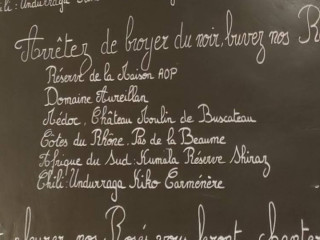 ili: Undurraga
Arrêtez de broyer du noir, buvez nos R
Réserve de la Maison AOP
Domaine Aureillan
Médoc, Château Moulin de Buscateau
Côtes du Rhône, Pas de la Beaume
Afrique du Sud: Kumala Réserve Shiraz
Chili: Undurraga Kiko Carménère
nos Rosé vous feront chanter